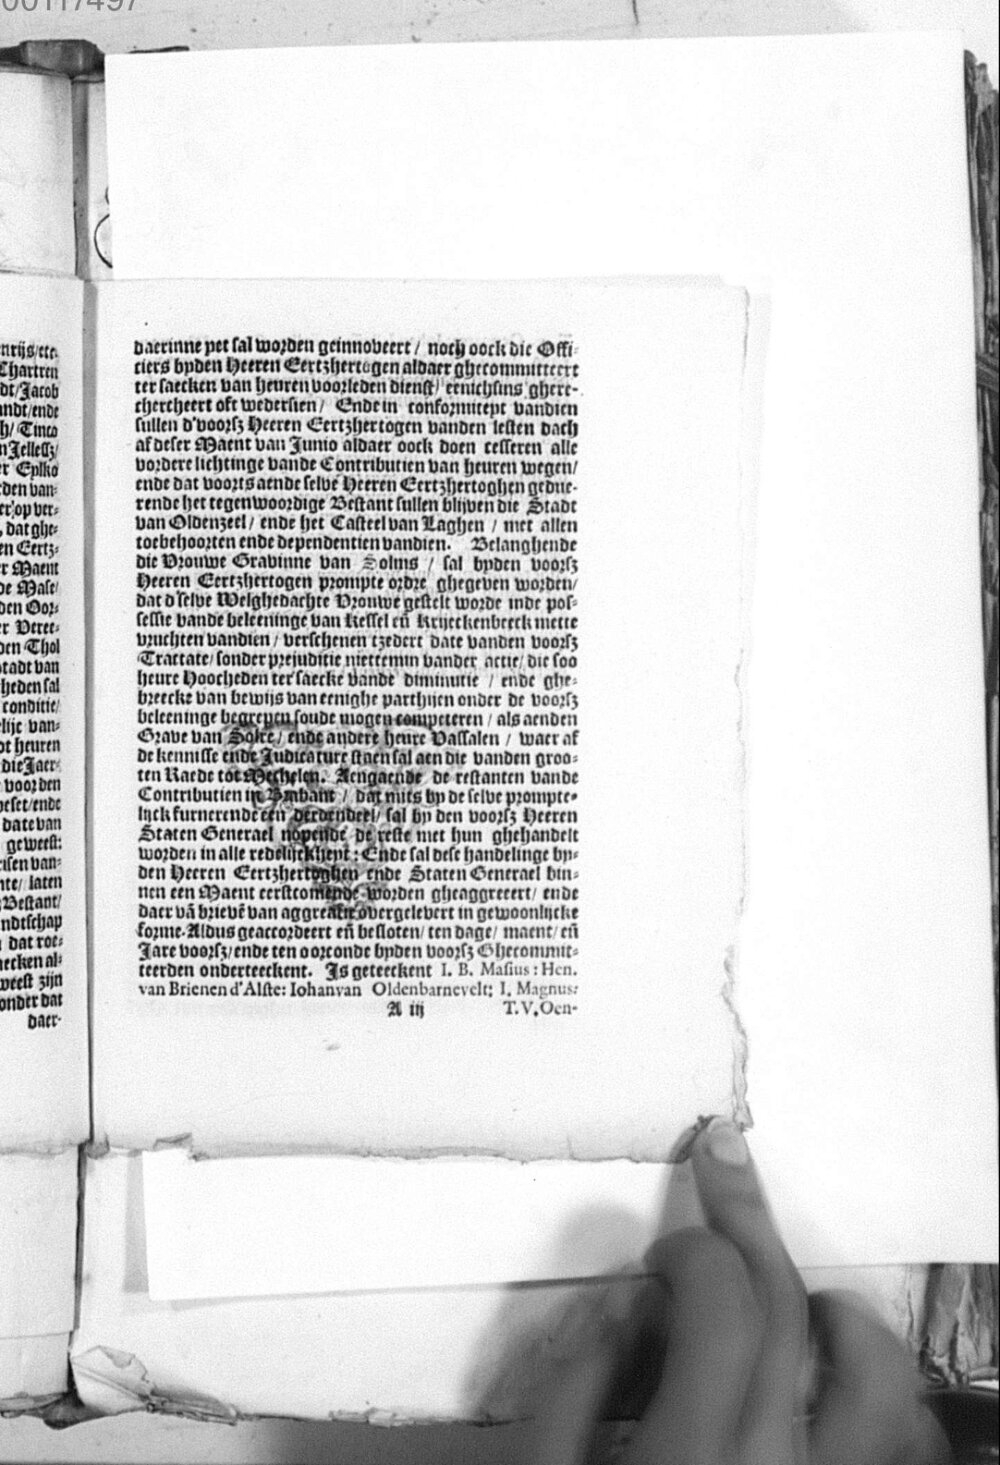 00117497
nrijs/etc.
Chartren
dt/Jacob
andt/ende
h/ Tinco
n Jellesz/
r Eplko
rden van-
er'op ver-
, dat ghe-
en Eertz-
r Maent
de Mase/
den Oor-
r Veree-
den Thol
stadt van
heden sal
conditie/
lije van-
ot heuren
die Jaer-
voorden
geset/ende
date van
geweest:
isen van-
nte/ laten
Bestant/
ndtschap
dat roe-
aecken al-
weest zijn
onder dat
daer-
daerinne yet sal worden geinnoveert / noch oock die Offi-
ciers byden Heeren Eertzhertogen aldaer ghecommitteert
ter saecken van heuren voorleden dienst/ eenichsins ghere-
chercheert oft wedersien / Ende in conformiteyt vandien
sullen d'voorsz Heeren Eertzhertogen vanden lesten dach
af deser Maent van Junio aldaer oock doen cesseren alle
vordere lichtinge vande Contributien van heuren wegen/
ende dat voorts aende selve Heeren Eertzhertoghen gedue-
rende het tegenwoordige Bestant sullen blijven die Stadt
van Oldenzeel / ende het Casteel van Laghen / met allen
toebehoorten ende dependentien vandien. Belanghende
die Vrouwe Gravinne van Solms / sal byden voorsz
Heeren Eertzhertogen prompte ordre ghegeven worden/
dat d'selve Welghedachte Vrouwe gestelt worde inde pos-
sessie vande beleeninge van Kessel eñ Krijeckenbeeck mette
vruchten vandien / verschenen tzedert date vanden voorsz
Tractate/ sonder prejuditie niettemin vander actie/ die soo
heure Hoocheden ter saecke vande diminutie / ende ghe-
breecke van bewijs van eenighe parthijen onder de voorsz
beleeninge begrepen soude mogen competeren / als aenden
Grave van Solre / ende andere heure Vassalen / waer af
de kennisse ende Judicature staen sal aen die vanden groo-
ten Raede tot Mechelen. Aengaende de restanten vande
Contributien in Brabant / dat mits by de selve prompte-
lijck furnerende een derdendeel / sal by den voorsz Heeren
Staten Generael nopende de reste met hun ghehandelt
worden in alle redelijckheyt : Ende sal dese handelinge by-
den Heeren Eertzhertoghen ende Staten Generael bin-
nen een Maent eerstcomende worden gheaggreeert / ende
daer vã brievẽ van aggreatie overgelevert in gewoonlijcke
forme. Aldus geaccordeert eñ besloten/ ten dage/ maent/ eñ
Jare voorsz/ ende ten oorconde byden voorsz Ghecommit-
teerden onderteeckent. Is geteeckent I. B. Masius : Hen.
van Brienen d'Alste: Iohan van Oldenbarnevelt: I. Magnus:
A iij T. V. Oen-